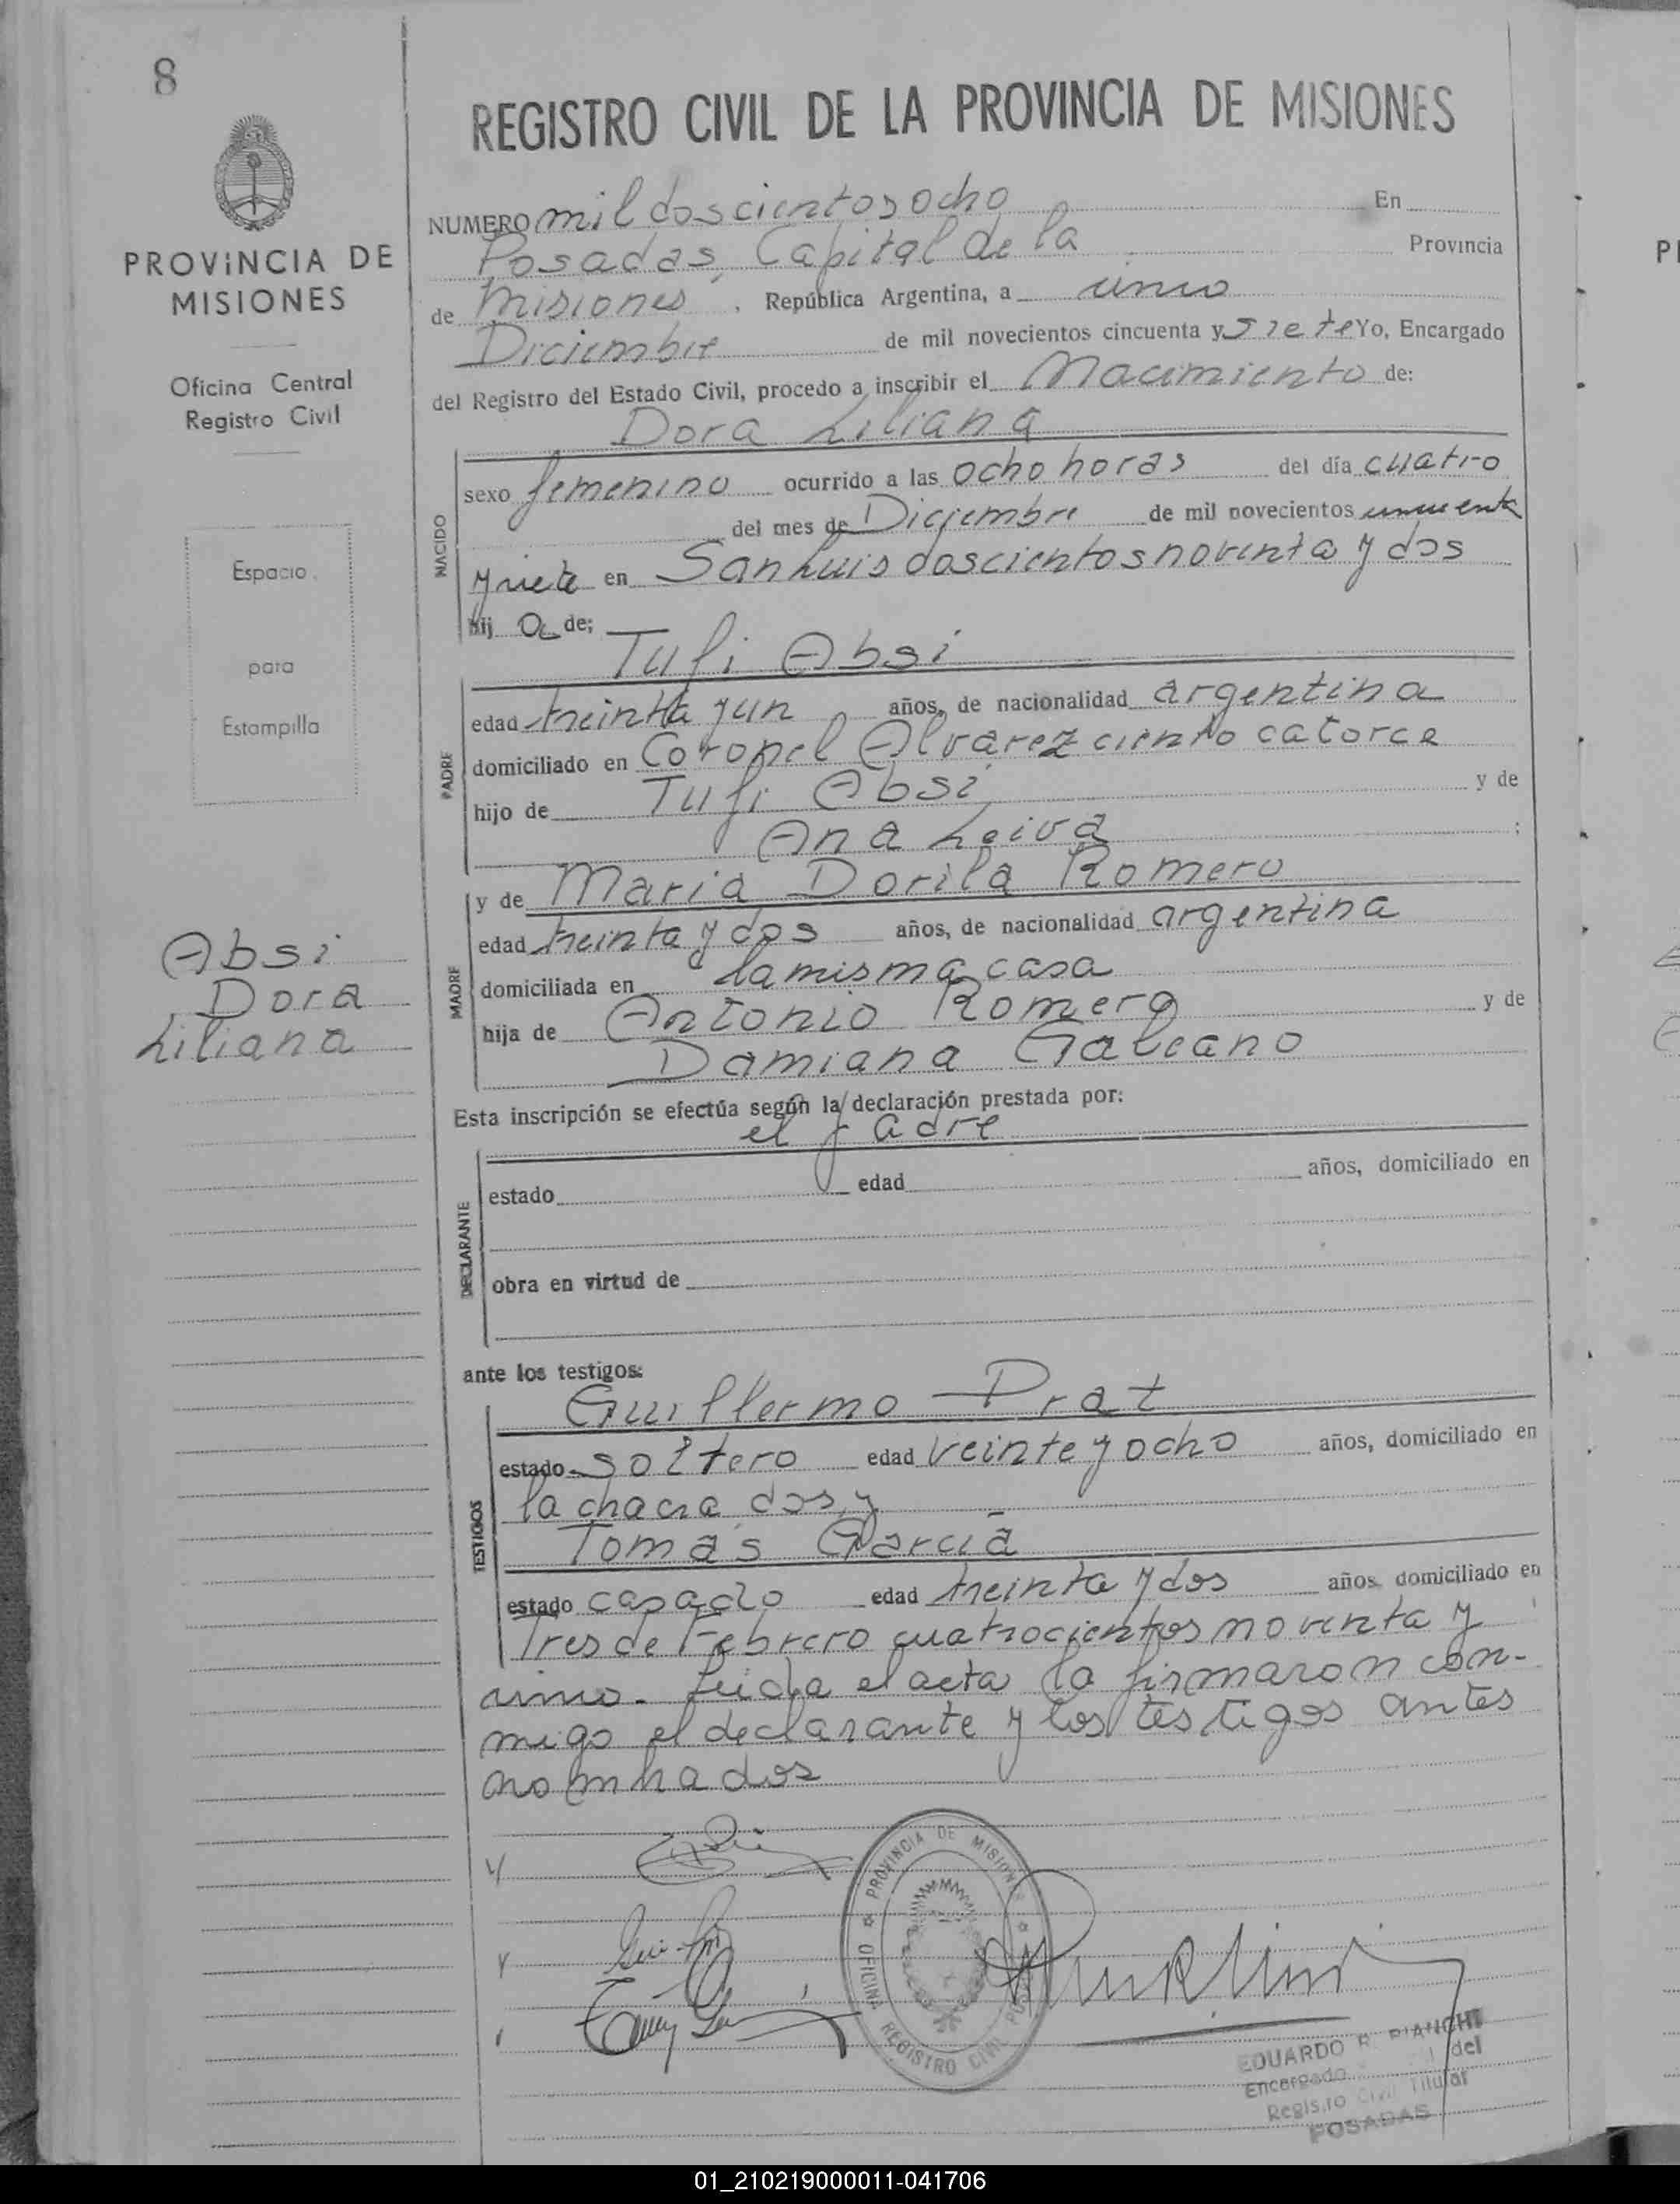 8
PROVINCIA DE
MISIONES
Oficina Central
Registro Civil
Espacio
para
Estampilla
Absi
Dora
Liliana
REGISTRO CIVIL DE LA PROVINCIA DE MISIONES
NUMERO mil doscientos ocho En
Posadas, Capital de la Provincia
de Misiones, República Argentina, a cinco
Diciembre de mil novecientos cincuenta y siete Yo, Encargado
del Registro del Estado Civil, procedo a inscribir el Nacimiento de:
Dora Liliana
NACIDO
sexo femenino ocurrido a las ocho horas del día cuatro
del mes de Diciembre de mil novecientos cincuenta
y siete en San Luis doscientos noventa y dos
hij a de;
Tufi Absi
PADRE
edad treinta y un años, de nacionalidad argentina
domiciliado en Coronel Alvarez ciento catorce
hijo de Tufi Absi y de
Ana Leiva ;
y de Maria Dorila Romero
MADRE
edad treinta y dos años, de nacionalidad argentina
domiciliada en la misma casa
hija de Antonio Romero y de
Damiana Galeano
Esta inscripción se efectúa según la declaración prestada por:
el padre
DECLARANTE
estado edad años, domiciliado en
obra en virtud de
ante los testigos:
Guillermo Prat
TESTIGOS
estado soltero edad veinte y ocho años, domiciliado en
la chacra dos, y
Tomás García
estado casado edad treinta y dos años, domiciliado en
Tres de Febrero cuatrocientos noventa y
cinco. Leida el acta la firmaron con-
migo el declarante y los testigos antes
nombrados
PROVINCIA DE MISIONES
OFICINA REGISTRO CIVIL POSADAS
EDUARDO R. BIANCHI
Encargado del
Registro Civil Titular
POSADAS
01_210219000011-041706